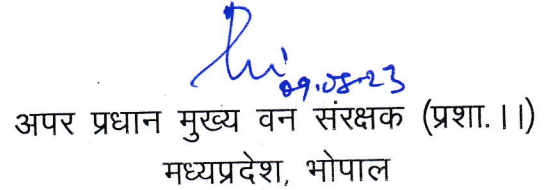 09.08.23
अपर प्रधान मुख्य वन संरक्षक (प्रशा.।।)
मध्यप्रदेश, भोपाल